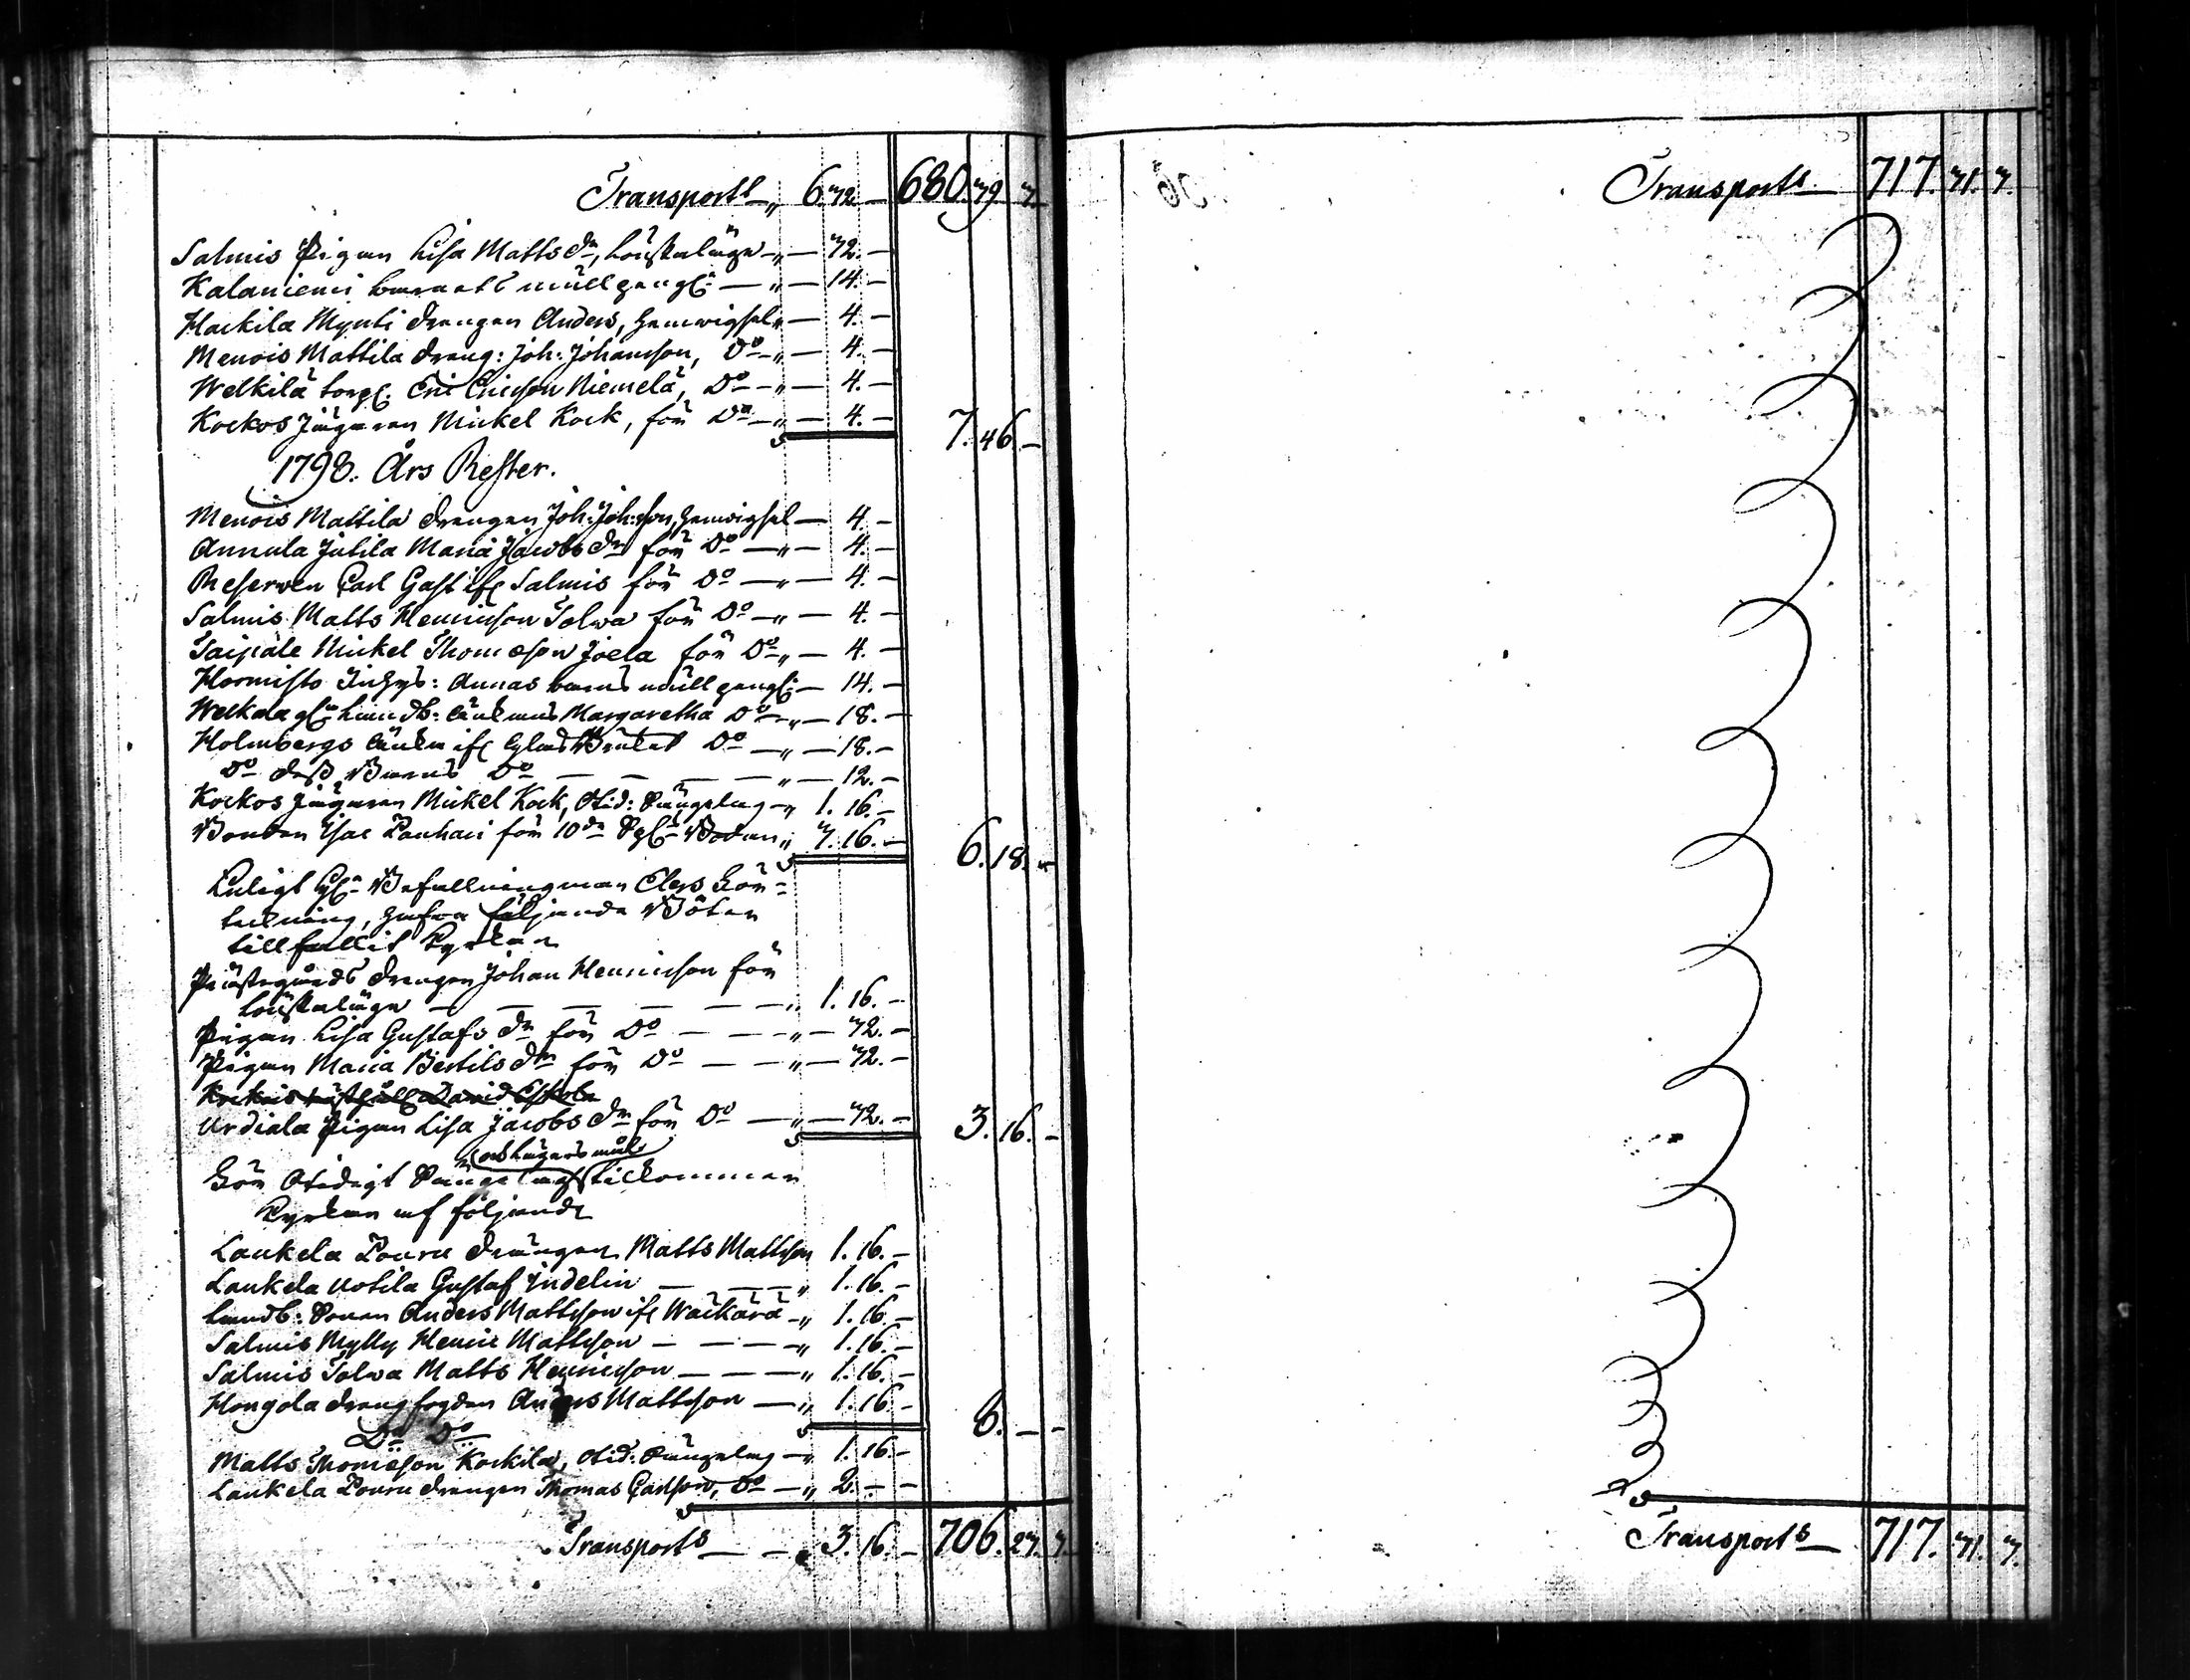 Transport „ 6. 72. — 680. 79. 7.
Salmis Pigan Lisa Mattsdr, Löuskaläge — „ — 72. —
Kalaniemi barnets mullpengr — „ — 14. —
Hackila Mynti drengen Anders, hemvigsel „ — 4. —
Menois Mattila dreng: Joh: Johansson, Do — „ — 4. —
Welkilä torp. Eric Ericson Niemelä, Do — „ — 4. —
Kockos Jägaren Mickel Kock, för Do — „ — 4. — 7. 46. —
1798. Års Rester.
Menois Mattila drengen Joh: Joh:sson, hemvigsel — 4. —
Annula Jutila Maria Jacobsdr för Do — „ — 4. —
Reserven Carl Gast ifr Salmis för Do — „ — 4. —
Salmis Matts Henricson Tolwa för Do — „ — 4. —
Taipale Mickel Thomæson Joela för Do — „ — 4. —
Hormisto Inhys: Annas barns mullpengr — 14. —
Welkala Enkans Margaretha Do — „ — 18. —
Holmbergs Enka ifr Glas Bruket Do — „ — 18. —
Do dess Barns Do — — — — „ — 12. —
Kockos Jägaren Mickel Kock, Otid: Sängelag — „ 1. 16. —
Bonden Isac för 10de „ 7. 16. — 6. 18. —
Enligt Befallningsman Elers För-
tekning, hafva följande Böter
tillfallit Kyrkan
Prästegårds drengen Johan Henricson för
Löuskaläge — — — — — „ 1. 16. —
Pigan Lisa Gustafsdr för Do — — — „ — 72. —
Pigan Maria Bertilsdr för Do — — — „ — 72. —
Urdiala Pigan Lisa Jacobsdr för Do — „ — 72. — 3. 16. —
och Lägersmål
För Otidigt Sängelag tillkommer
Kyrkan af följande
Laukela Pouru drängen Matts Mattson 1. 16. —
Laukela Uotila Gustaf Indelin — — — „ 1. 16. —
Sonen Anders Mattsson ifr Wäckärä — „ 1. 16. —
Salmis Mylly Henric Mattsson — — — „ 1. 16. —
Salmis Tolwa Matts Henricson — — — „ 1. 16. —
Hongola drengfogden Anders Mattsson — „ 1. 16. — 8. — —
Do Do
Matts Thomæson Kockila, Otid: Sängelag — „ 1. 16. —
Laukela Pouru drengen Thomas Carlson, Do — „ 2. — —
Transport — — 3. 16. — 706. 27. 7.
Transport — 717. 71. 7.
Transport — 717. 71. 7.